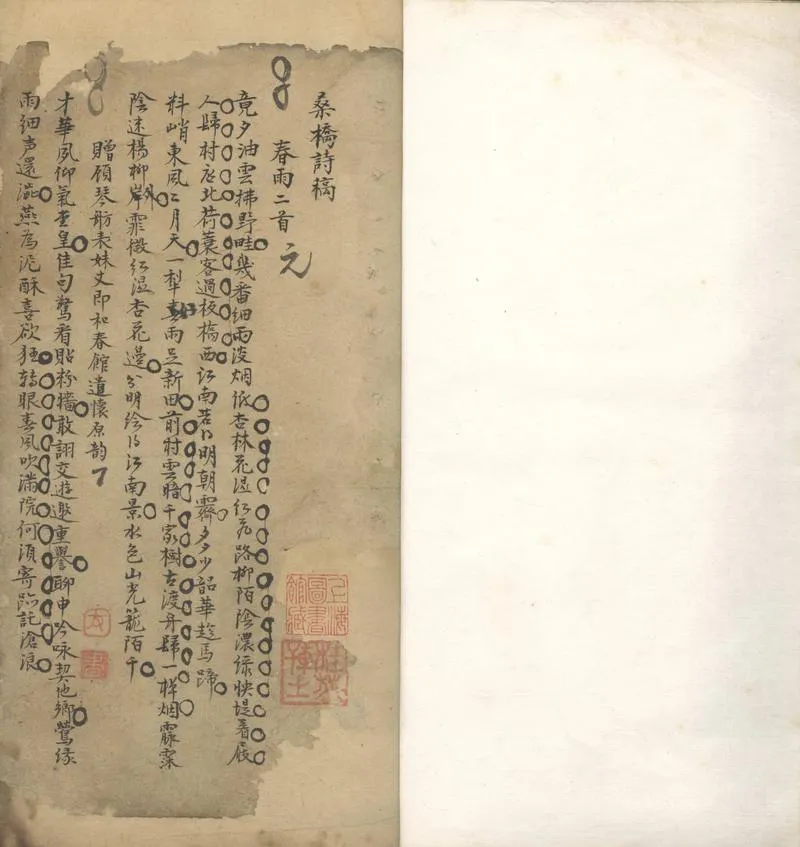 桑橋詩稿
春雨二首
元
竟夕油雲拂野畦幾番細雨泼烟低杏林花湿红飛路柳陌陰濃绿快堤着屐
人歸村店北荷蓑客過板橋西江南若明朝霽夕少韶華趁馬蹄
料峭東風二月天一犁春雨足新田前村雲暗千家樹古渡舟歸一樣烟霖霂
陰迷楊柳岸外霏微红湿杏花邊分明绘江南景水色山光籠陌千
贈顧琴舫表妹丈即和春館遣懷原韵
才華夙仰氣皇佳句驚看貼粉牆敢詡交遊邀重譽聊申吟咏契他鄉鶯缘
雨细声還澁燕為泥酥喜欲狂转眼春風吹满院何須寄临託滄浪
上海圖書館藏